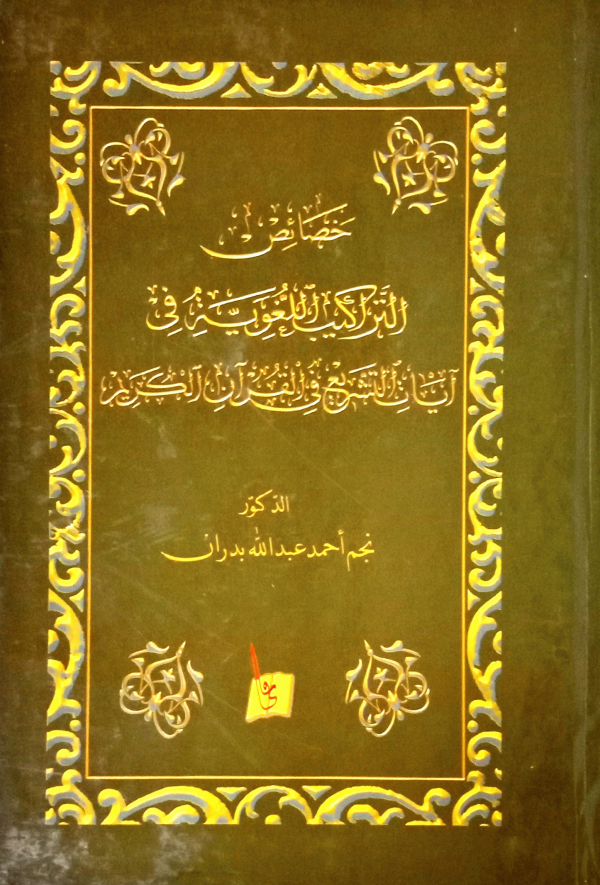 خَصَائِصُ
التَّرَاكِيبِ اللُّغَوِيَّةِ فِي
آيَاتِ التَّشْرِيعِ فِي القُرْآنِ الكَرِيْمِ
الدّكتور
نجم أحمد عبد الله بدران